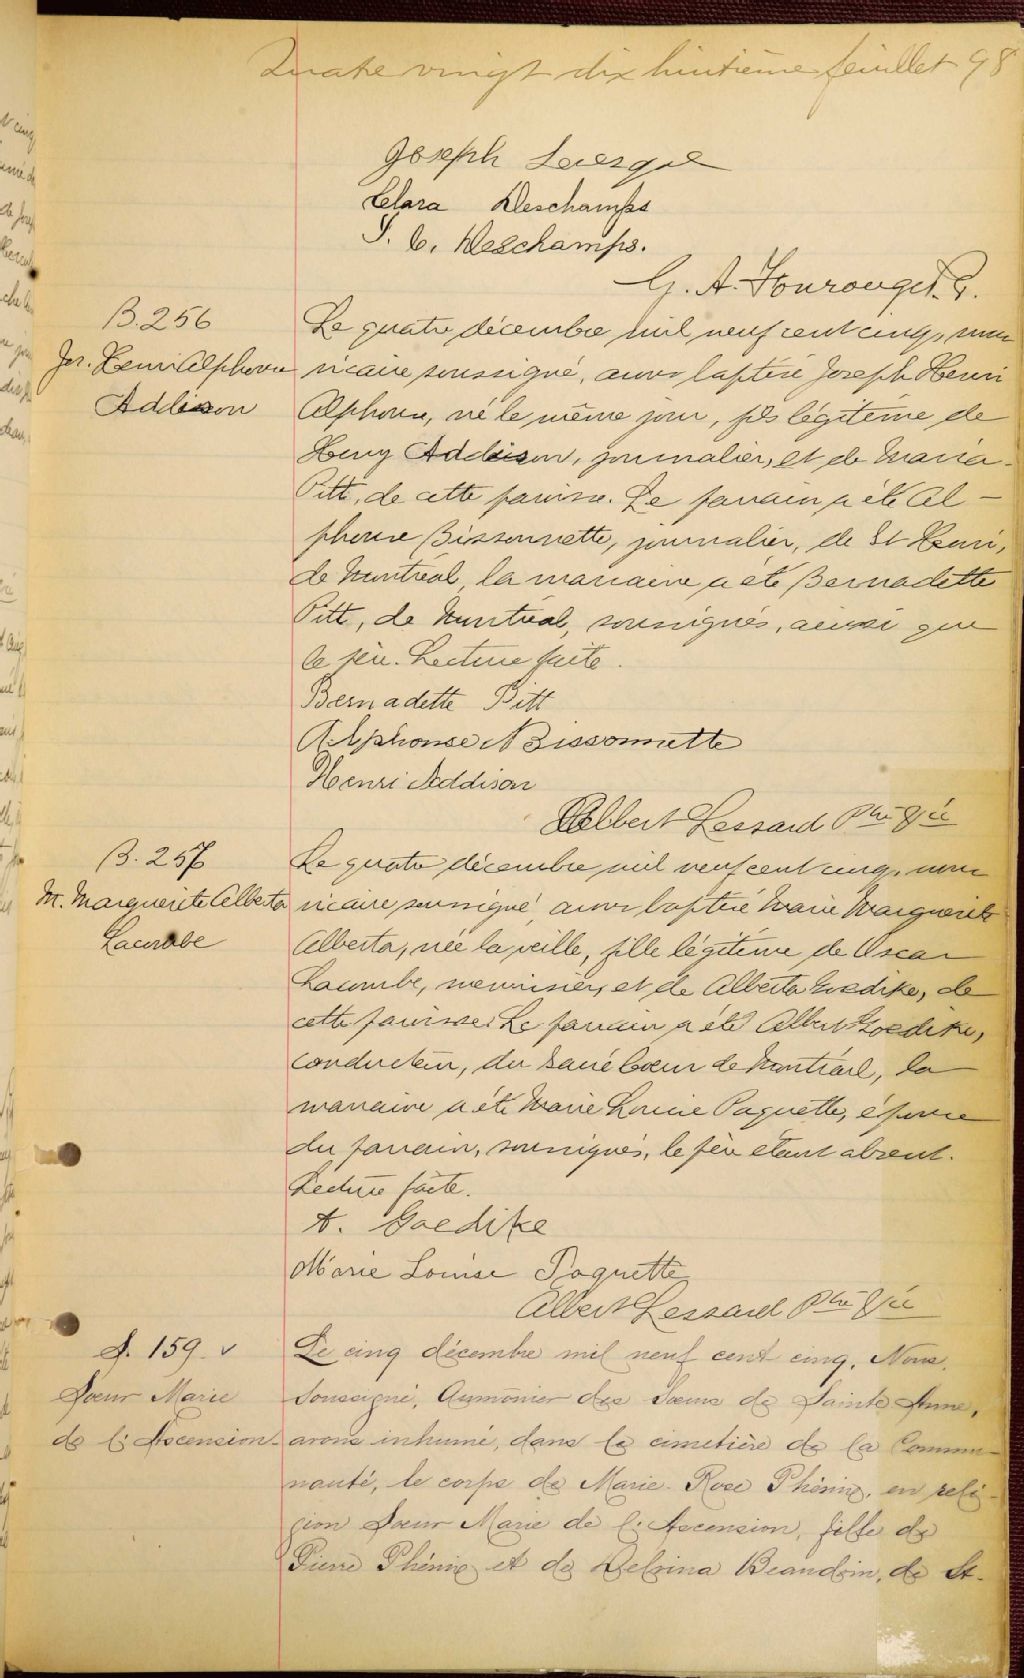 Quatre vingt dix huitième feuillet 98
Joseph Levesque
Clara Deschamps
J. C. Deschamps.
G. A.
B. 256
Jos. Henri Alphonse
Addison
Le quatre décembre mil neuf cent cinq, nous
vicaire soussigné, avons baptisé Joseph Henri
Alphonse, né le même jour, fils légitime de
Henry Addison, journalier, et de Maria
Pitt, de cette paroisse. Le parrain a été Al-
phonse Bissonnette, journalier, de St Henri,
de Montréal, la marraine a été Bernadette
Pitt, de Montréal, soussignés, ainsi que
le père. Lecture faite.
Bernadette Pitt
Alphonse Bissonnette
Henri Addison
Albert Lessard Ptre Vic
B. 257
M. Marguerite Alberta
Lacombe
Le quatre décembre mil neuf cent cinq, nous
vicaire soussigné, avons baptisé Marie Marguerite
Alberta, née la veille, fille légitime de Oscar
Lacombe, menuisier, et de Alberta Goedike, de
cette paroisse. Le parrain a été Albert Goedike,
conducteur, du Sacré Coeur de Montréal, la
marraine a été Marie Louise Paquette, épouse
du parrain, soussignés, le père étant absent.
Lecture faite.
A. Goedike
Marie Louise Paquette
Albert Lessard Ptre Vic
S. 159. v
Soeur Marie
de l'Ascension.
Le cinq décembre mil neuf cent cinq, Nous,
soussigné, Aumônier des Soeurs de Sainte Anne,
avons inhumé, dans le cimetière de la Commu-
nauté, le corps de Marie-Rose Phénix, en reli-
gion Soeur Marie de l'Ascension, fille de
Pierre Phénix et de Delvina Beaudoin, de St-